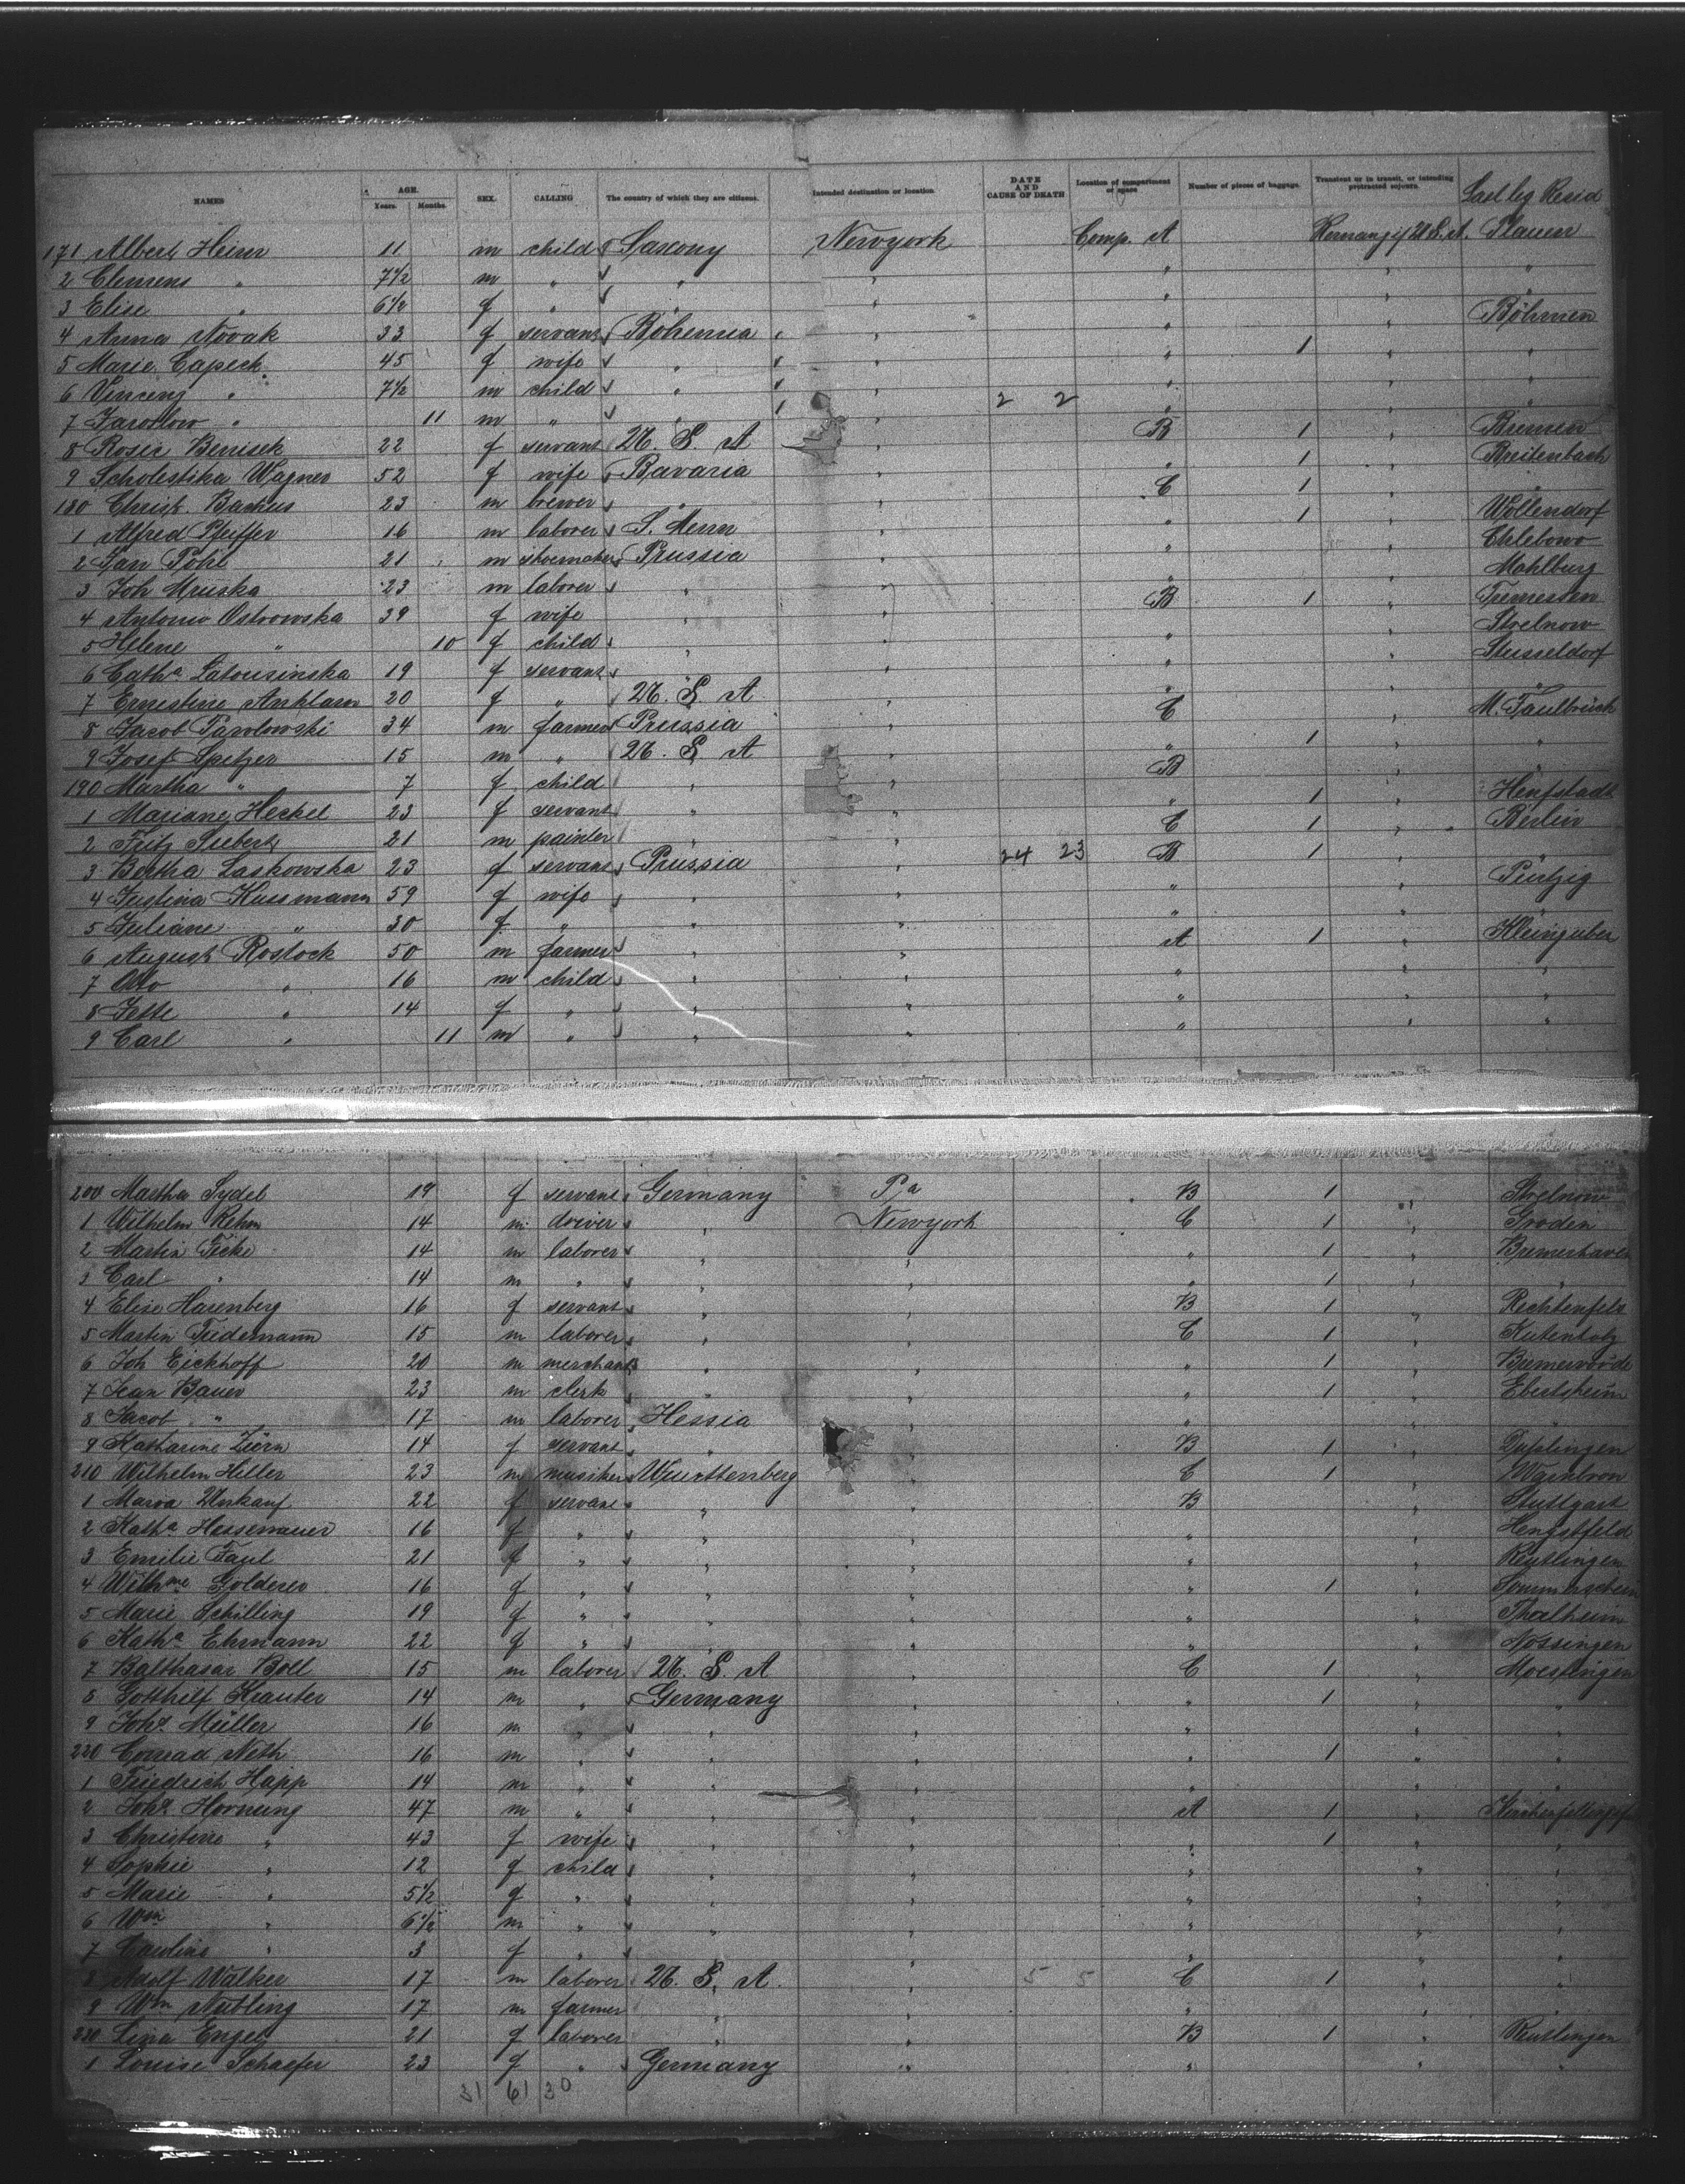 NAMES AGE. Years. Months. SEX. CALLING The country of which they are citizens. Intended destination or location DATE AND CAUSE OF DEATH Location of compartment or space Number of pieces of baggage. Transient or in transit, or intending protracted sojourn. Last leg Resid
171 Albert Heinr 11 m child Saxony Newyork Comp. A U.S.A. Plauen
2 Clemens " 7 1/2 m " " " " " "
3 Elise " 6 1/2 f " " " " "
4 Anna Novak 33 f servant Bohemia " " " Böhmen
5 Marie Capeck 45 f wife " " " 1 " "
6 Vincenz " 7 1/2 m child " " " " "
7 Jaroslow " 11 m " " " 2 2 " " "
8 Rosie Benisek 22 f servant U. S. A " B 1 " Bremen
9 Scholestika Wagner 52 f wife Bavaria " " 1 " Breitenbach
180 Christ. Backus 23 m brewer " " C 1 " "
1 Alfred Pfeiffer 16 m laborer S. Mein " " 1 " Wöllendorf
2 Jan Pohl 21 m shoemaker Prussia " " " Chlebowo
3 Joh Mruska 23 m laborer " " " " Mahlburg
4 Antonio Ostrowska 39 f wife " " B 1 " Tremessen
5 Helene " 10 f child " " " " Strelnow
6 Catha Latousinska 19 f servant " " " " Stusseldorf
7 Ernestine Anklam 20 f " U. S. A " " " "
8 Jacob Pawlowski 34 m farmer Prussia " C " M. Faulbrück
9 Josef Spitzer 15 m " U. S. A " " 1 " "
190 Martha " 7 f child " " B " "
1 Mariane Heckel 23 f servant " " " 1 " Henfstadt
2 Fritz Siebert 21 m painter " " C 1 " Berlin
3 Bertha Laskowska 23 f servant Prussia " 24 23 B 1 " "
4 Justina Kussmann 59 f wife " " " " Pintzig
5 Juliane " 30 f " " " " "
6 August Rostock 50 m farmer " " A 1 " Kleinguber
7 Otto " 16 m child " " " " "
8 Jette " 14 f " " " " " "
9 Carl " 11 m " " " " " "
200 Martha Sydel 19 f servant Germany Pa B 1 " Strelnow
1 Wilhelm Rehm 14 m driver " Newyork C 1 " Groden
2 Martin Ficke 14 m laborer " " " 1 " Bremerhaven
3 Carl " 14 m " " " " 1 " "
4 Elise Hasenberg 16 f servant " " B 1 " Rechtenfels
5 Martin Tiedemann 15 m laborer " " C 1 " Kutenholz
6 Joh Eickhoff 20 m merchant " " " 1 " Bremervörde
7 Jean Bauer 23 m clerk " " " 1 " Ebertsheim
8 Jacob " 17 m laborer Hessia " " " "
9 Katharine Zürn 14 f servant " " B 1 " Dusslingen
210 Wilhelm Hiller 23 m musiker Wuerttemberg " C 1 " Warmbron
1 Maria Unkauf 22 f servant " " B " Stuttgart
2 Katha Hessenauer 16 f " " " " " Hengstfeld
3 Emilie Faul 21 f " " " " " Reutlingen
4 Wilhme Golderer 16 f " " " " 1 "
5 Marie Schilling 19 f " " " " " Thalheim
6 Katha Ehmann 22 f " " " " " Nossingen
7 Balthasar Boll 15 m laborer U. S. A " C 1 " Moessingen
8 Gotthilf Krauter 14 m " Germany " " 1 " "
9 Johs Müller 16 m " " " " " "
220 Conrad Neth 16 m " " " " 1 " "
1 Friedrich Happ 14 m " " " " " "
2 Johs Hornung 47 m " " " A 1 "
3 Christine " 43 f wife " " " 1 " "
4 Sophie " 12 f child " " " " "
5 Marie " 5 1/2 f " " " " " "
6 Wm " 6 1/2 m " " " " " "
7 Caroline " 3 f " " " " " "
8 Adolf Walker 17 m laborer U. S. A. " 5 5 C 1 " "
9 Wm Nübling 17 m farmer " " " " "
230 Lina Engel 21 f laborer " " B 1 " Reutlingen
1 Louise Schaefer 23 f " Germany " " " "
31 61 30